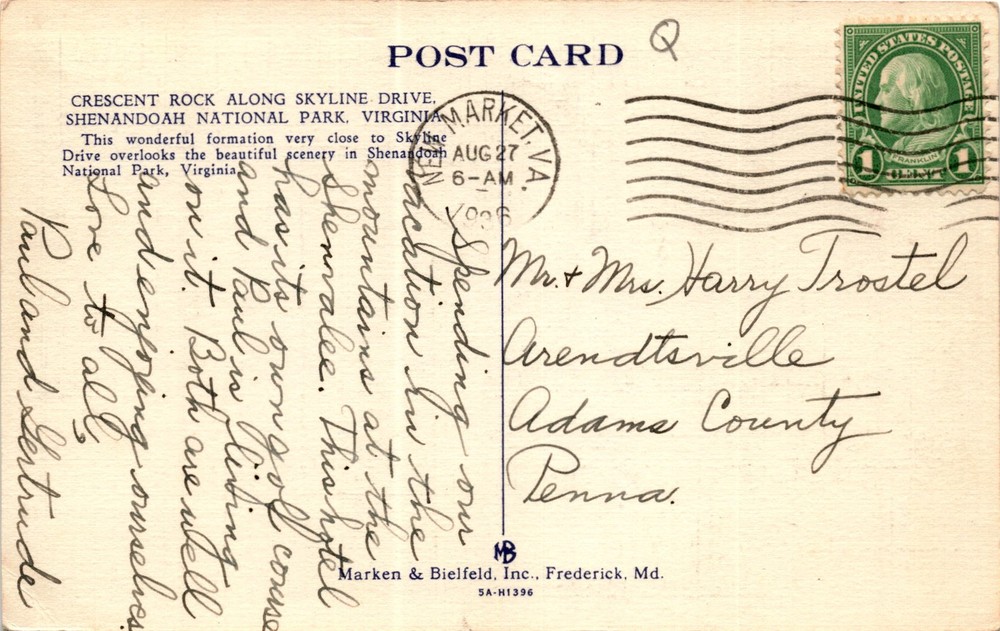 Q
POST CARD
CRESCENT ROCK ALONG SKYLINE DRIVE,
SHENANDOAH NATIONAL PARK, VIRGINIA
This wonderful formation very close to Skyline
Drive overlooks the beautiful scenery in Shenandoah
National Park, Virginia.
NEW MARKET, VA.
AUG 27
6-AM
UNITED STATES POSTAGE
FRANKLIN
1 CENT 1
Spending our
vacation in the
mountains at the
Shenvalee. This hotel
has its own golf course
and Paul is living
on it. Both are well
and enjoying ourselves
Love to all,
Paul and Gertrude
Mr. + Mrs. Harry Trostel
Arendtsville
Adams County
Penna.
MB
Marken & Bielfeld, Inc., Frederick, Md.
5A-H1396